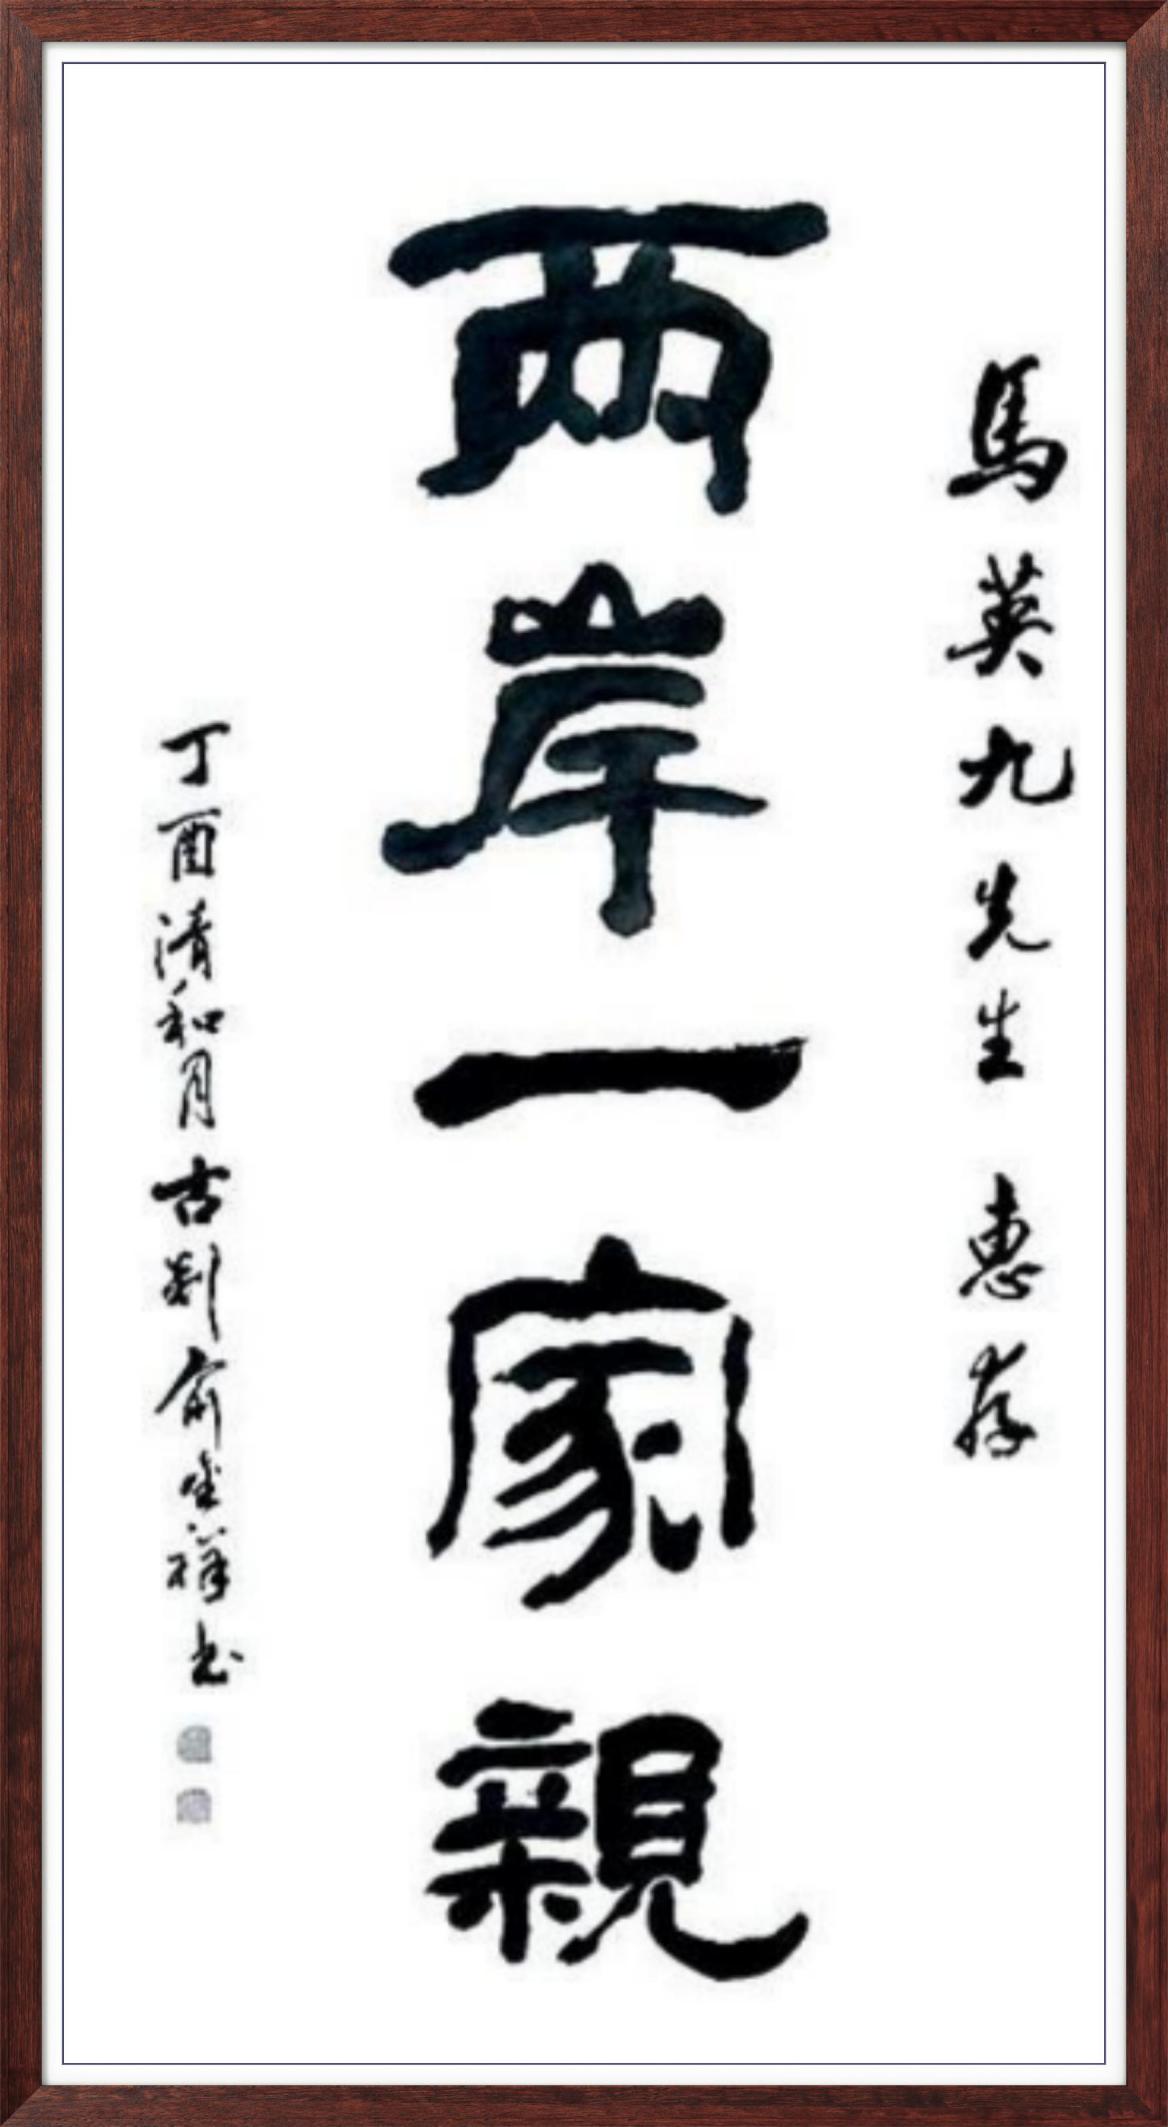 馬英九先生 惠存
兩岸一家親
丁酉清和月古剡俞金祥书